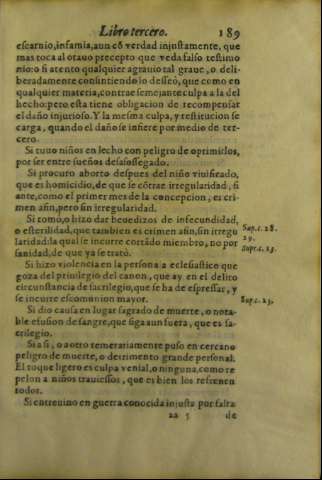 Libro tercero. 189
escarnio, infamia, aun cõ verdad injustamente, que
mas toca al otauo precepto que veda falso testimo
nio: o si atento qualquier agrauio tal graue, o deli-
beradamente consintiendo lo desseò, que como en
qualquier materia, contrae semejante culpa a la del
hecho: pero esta tiene obligacion de recompensar
el daño injurioso. Y la mesma culpa, y restitucion se
carga, quando el daño se infiere por medio de ter-
cero.
Si tuuo niños en lecho con peligro de oprimirlos,
por ser entre sueños desasossegado.
Si procuro aborto despues del niño viuificado,
que es homicidio, de que se cõtrae irregularidad, si
ante, como el primer mes de la concepcion, es cri-
men afin, pero sin irregularidad.
Si tomò, o hizo dar beuedizos de infecundidad,
o esterilidad, que tambien es crimen afin, sin irregu
laridad: la qual se incurre cortãdo miembro, no por
sanidad, de que ya se tratò.
Sup.c. 28.
29.
Supr.c. 25.
Si hizo violencia en la persona a eclesiastico que
goza del priuilegio del canon, que ay en el delito
circunstancia de sacrilegio, que se ha de espressar, y
se incurre escomunion mayor.
Sup.c. 23.
Si dio causa en lugar sagrado de muerte, o nota-
ble efusion de sangre, que siga aun fuera, que es sa-
crilegio.
Si a si, o a otro temerariamente puso en cercano
peligro de muerte, o detrimento grande personal.
El toque ligero es culpa venial, o ninguna, como re
pelon a niños trauiessos, que es bien los refrenen
todos.
Si entreuino en guerra conocida injusta por falta
aa 5 de